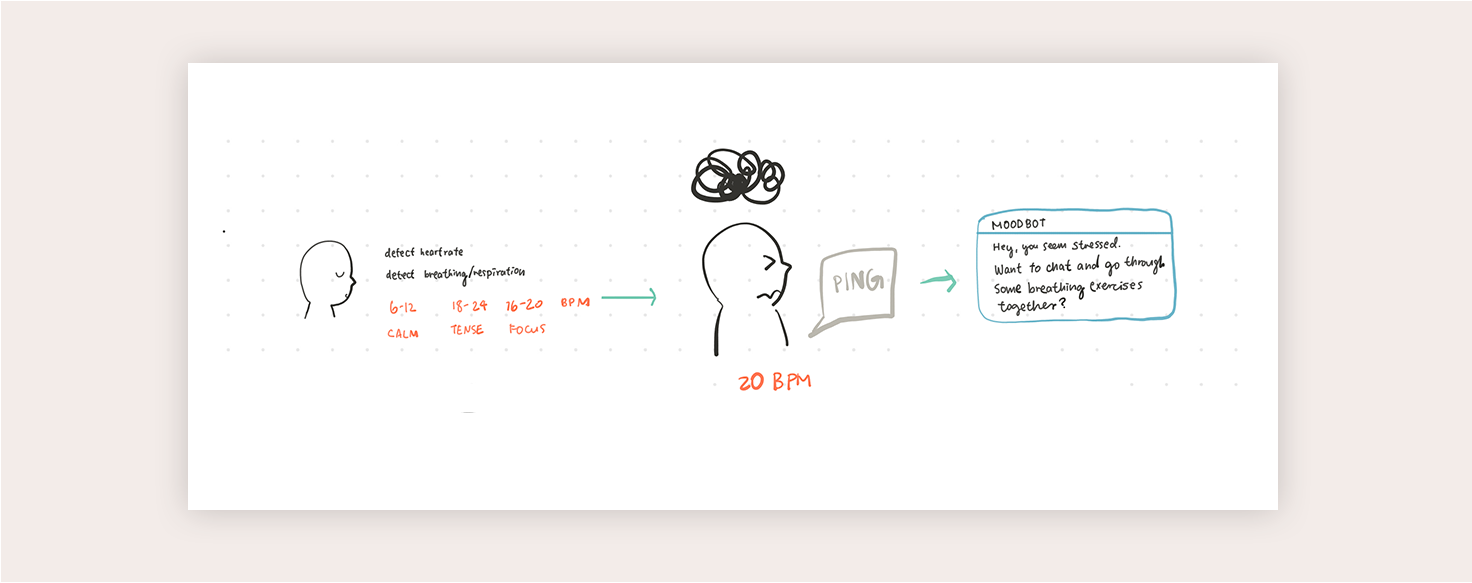 detect heartrate
detect breathing/respiration
6-12 18-24 16-20 BPM
CALM TENSE FOCUS
20 BPM
PING
MOODBOT
Hey, you seem stressed.
Want to chat and go through
Some breathing exercises
together?